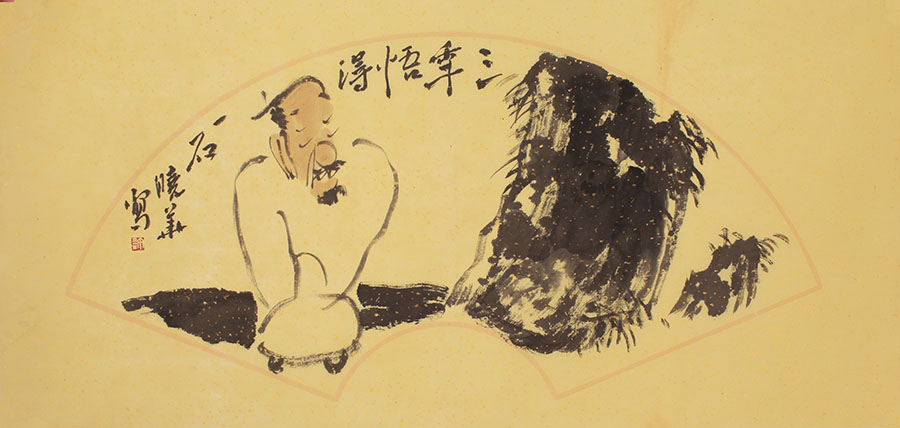 三年悟得
一石
曉華
寫